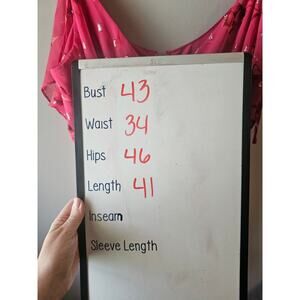 Bust 43
Waist 34
Hips 46
Length 41
Inseam
Sleeve Length